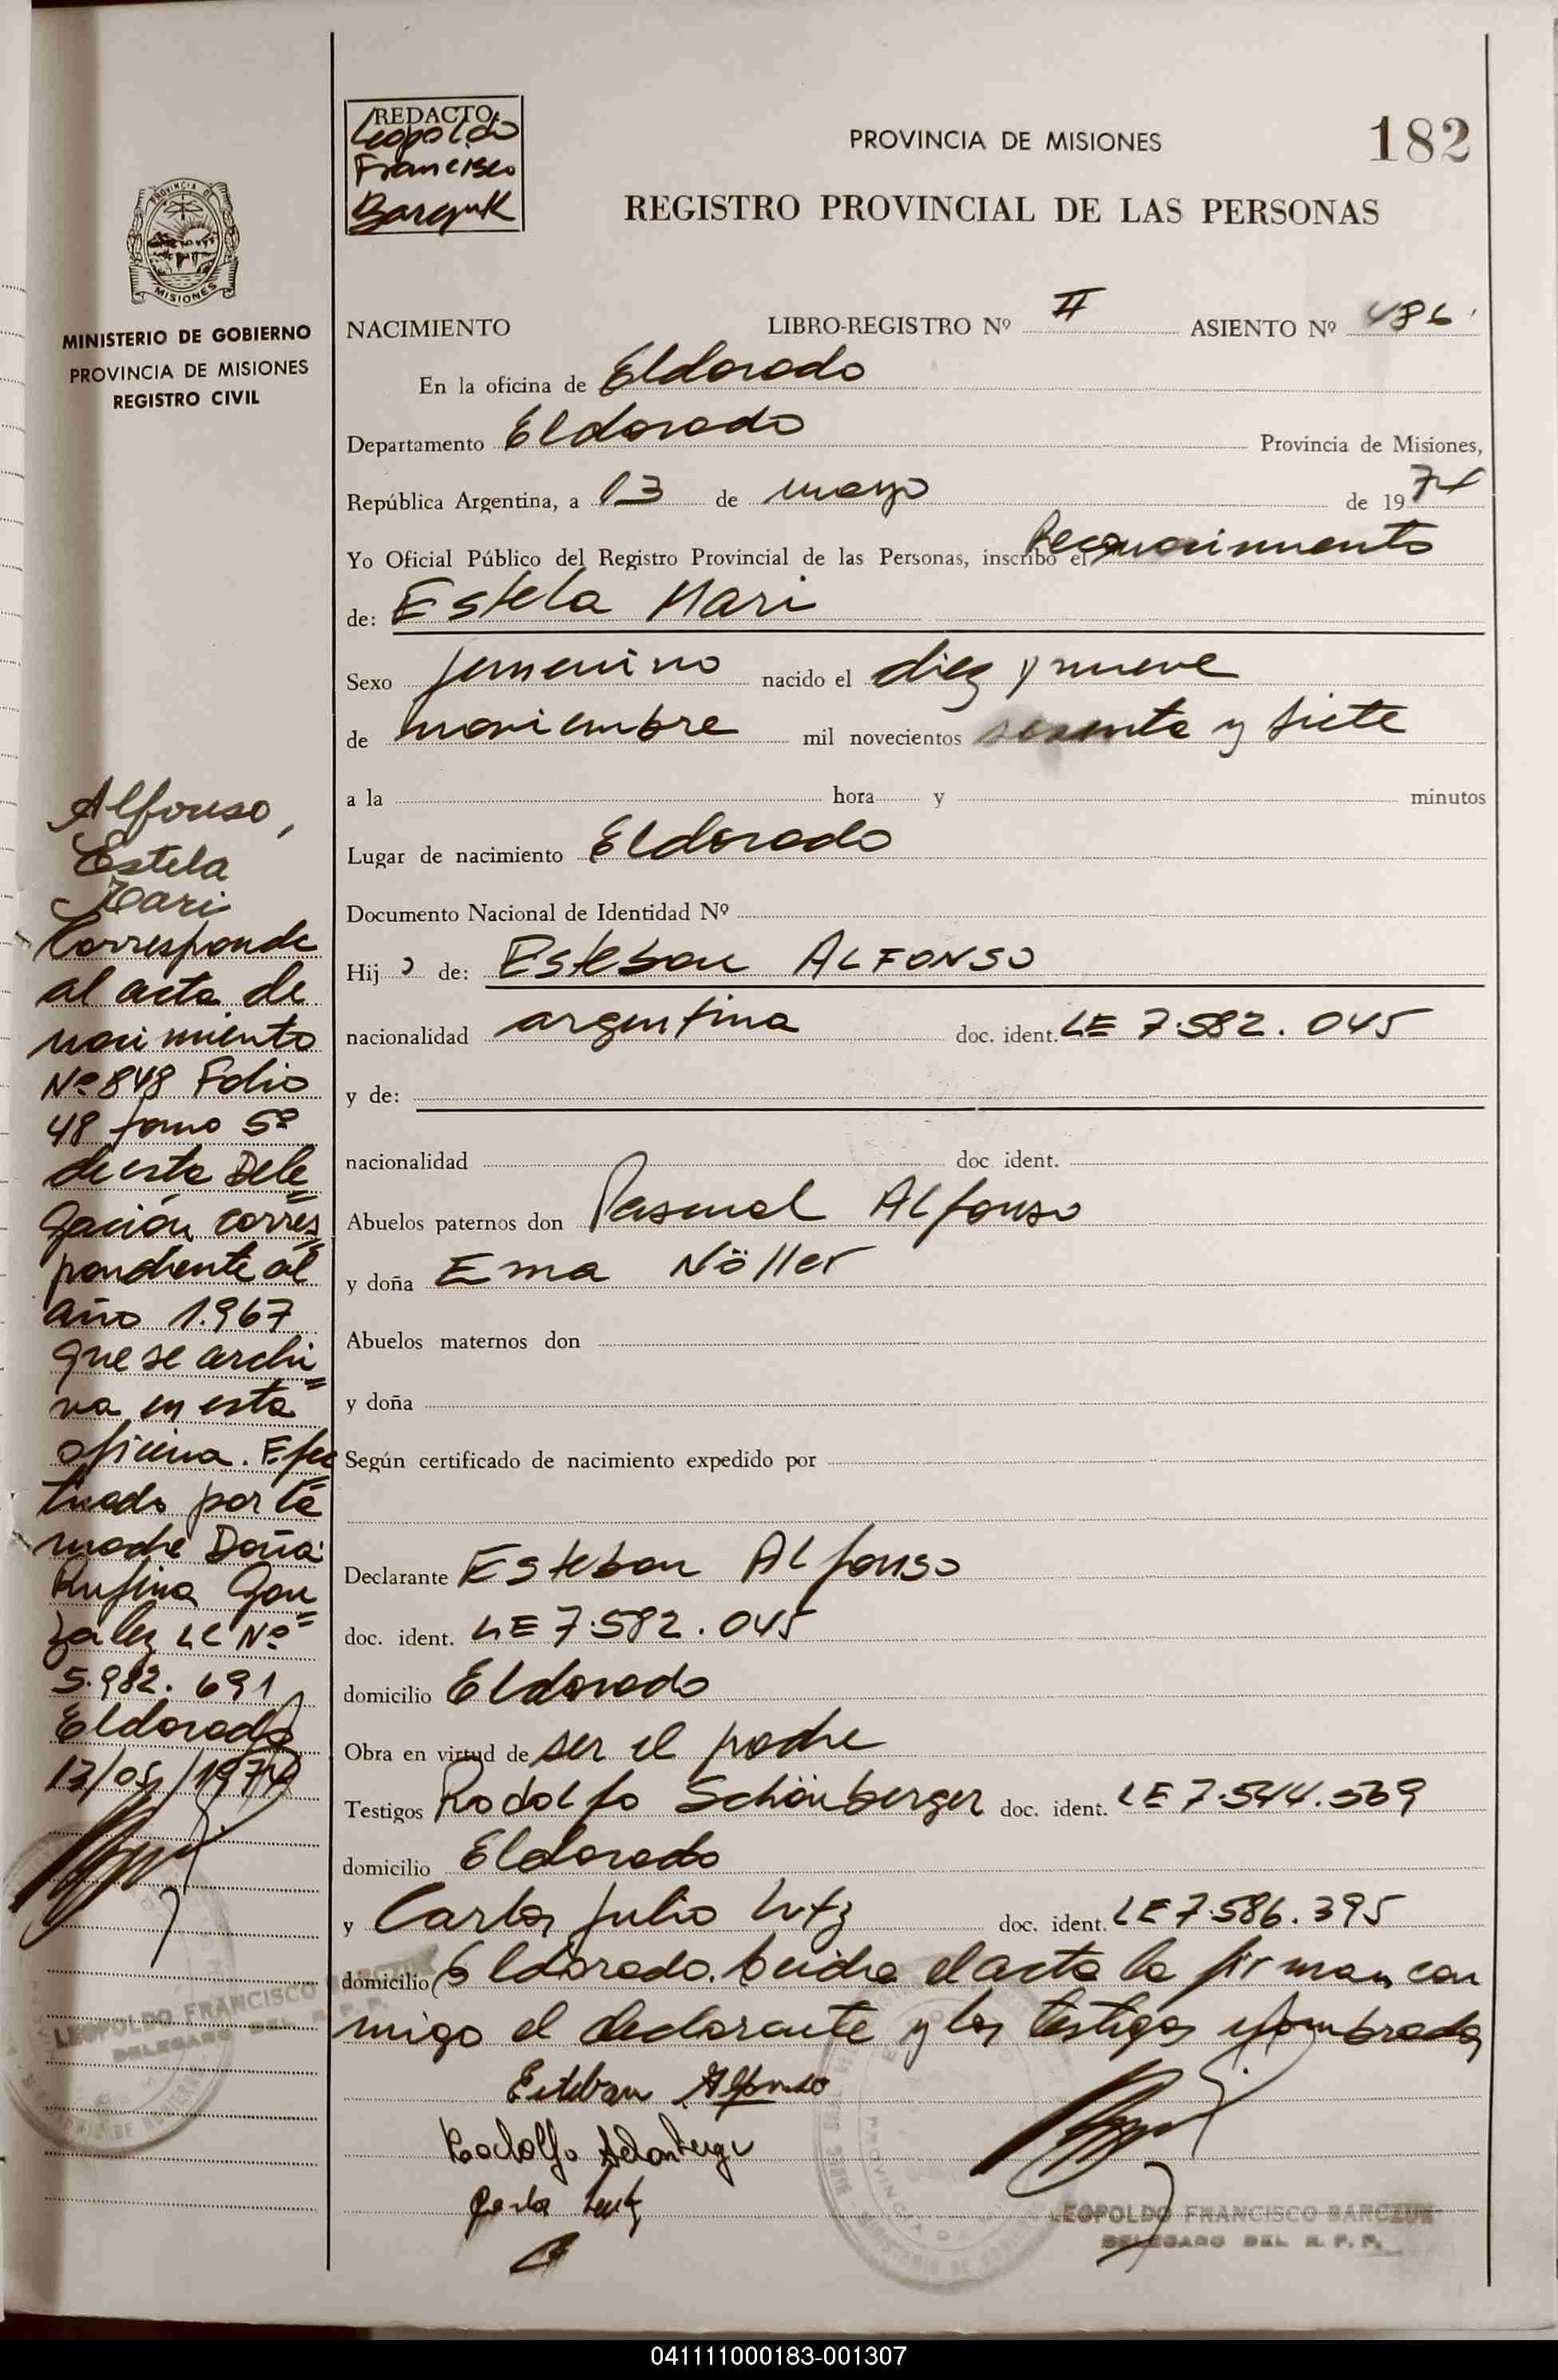 182
REDACTO
Leopoldo
Francisco
Barczuk
PROVINCIA DE MISIONES
REGISTRO PROVINCIAL DE LAS PERSONAS
PROVINCIA DE
MISIONES
MINISTERIO DE GOBIERNO
PROVINCIA DE MISIONES
REGISTRO CIVIL
NACIMIENTO LIBRO-REGISTRO Nº II ASIENTO Nº 486
En la oficina de Eldorado
Departamento Eldorado Provincia de Misiones,
República Argentina, a 13 de mayo de 1974
Yo Oficial Público del Registro Provincial de las Personas, inscribo el
de: Estela Mari
Sexo femenino nacido el diez y nueve
de noviembre mil novecientos sesenta y siete
a la hora y minutos
Lugar de nacimiento Eldorado
Documento Nacional de Identidad Nº
Hij o de: Esteban ALFONSO
nacionalidad argentina doc. ident. LE 7.582.045
y de:
nacionalidad doc. ident.
Abuelos paternos don Pascual Alfonso
y doña Ema Nöller
Abuelos maternos don
y doña
Según certificado de nacimiento expedido por
Declarante Esteban Alfonso
doc. ident. LE 7.582.045
domicilio Eldorado
Obra en virtud de ser el padre
Testigos Rodolfo Schönberger doc. ident. LE 7.544.569
domicilio Eldorado
y Carlos Julio Lutz doc. ident. LE 7.586.395
domicilio Eldorado. Leida el acta la firman con
migo el declarante y los testigos nombrados
Esteban Alfonso
Rodolfo Schönberger
Carlos Lutz
LEOPOLDO FRANCISCO BARCZUK
DELEGADO DEL R. P. P.
Alfonso,
Estela
Mari
Corresponde
al acta de
nacimiento
Nº 848 Folio
48 tomo 5º
de esta Dele=
gación corres=
pondiente al
año 1.967
que se archi=
va en esta
oficina. Efec=
tuado por la
madre Doña
Rufina Gon=
zalez LC Nº
5.982.691
Eldorado
13/05/1974
LEOPOLDO FRANCISCO BARCZUK
DELEGADO DEL R. P. P.
041111000183-001307